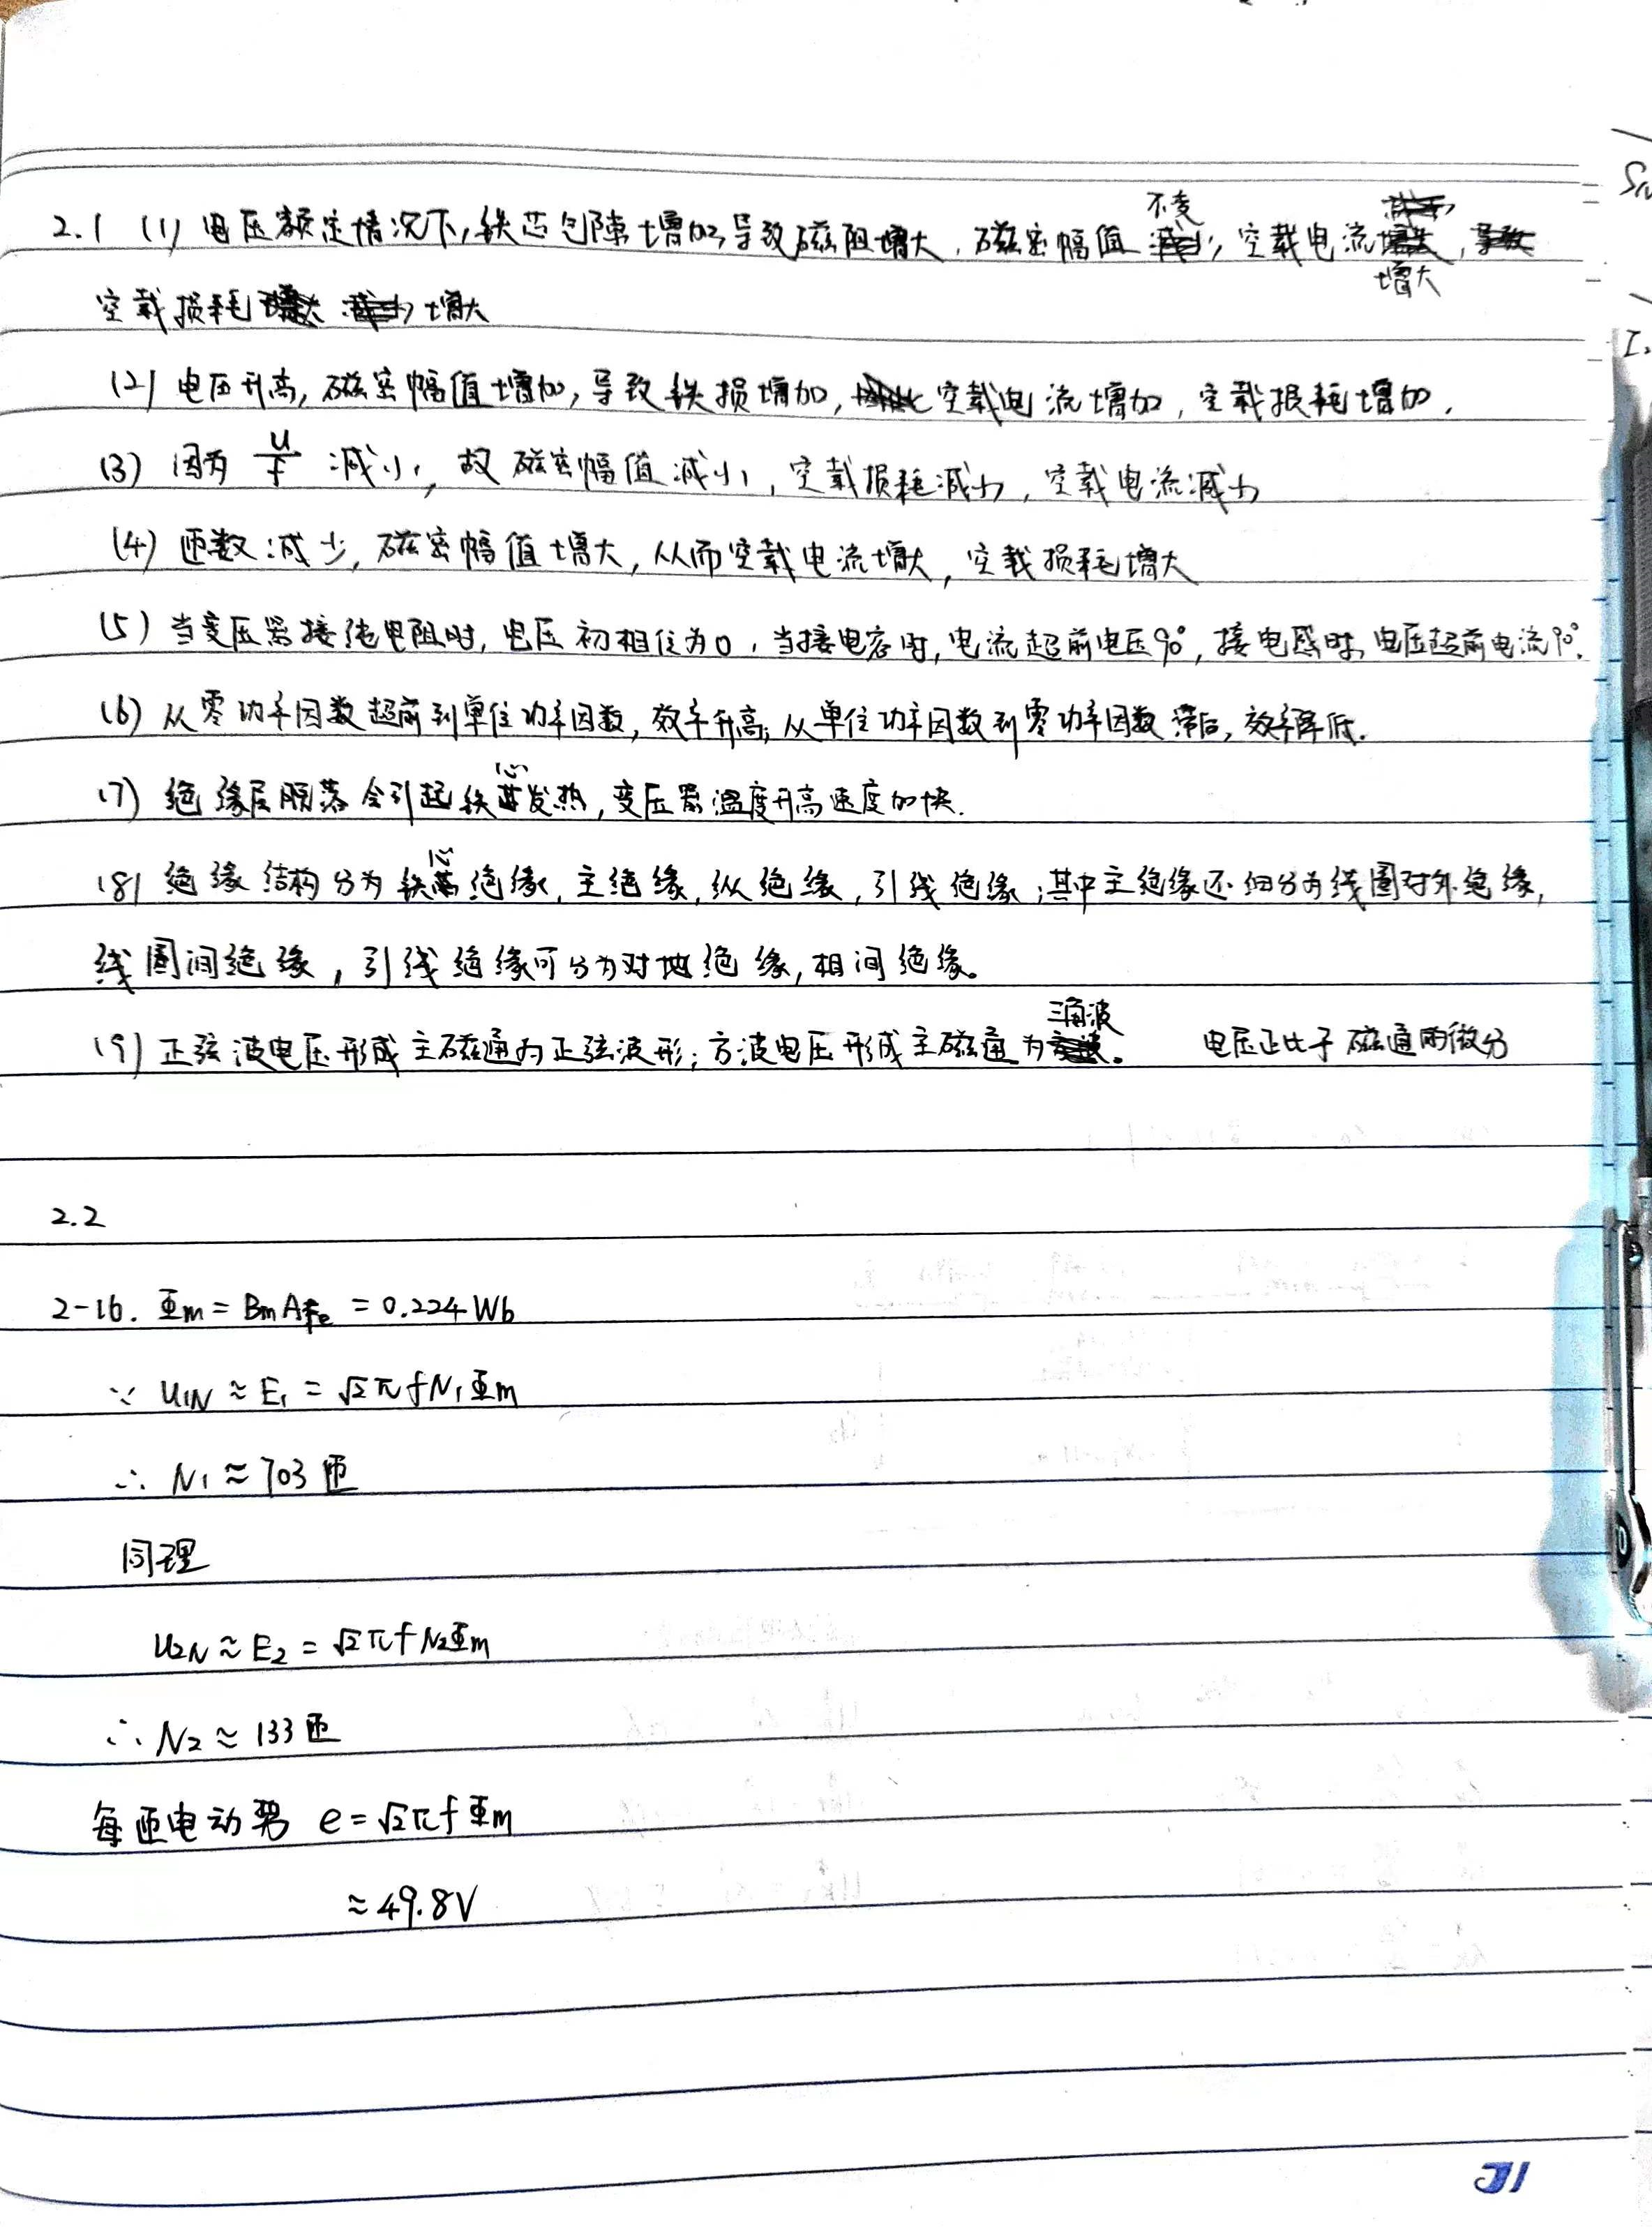 2.1 (1) 电压额定情况下,铁芯气隙增加,导致磁阻增大,磁密幅值不变,空载电流增大,
空载损耗增大
(2) 电压升高,磁密幅值增加,导致铁损增加,空载电流增加,空载损耗增加.
(3) 因为 U/f 减小,故磁密幅值减小,空载损耗减少,空载电流减少
(4) 匝数减少,磁密幅值增大,从而空载电流增大,空载损耗增大
(5) 当变压器接纯电阻时,电压初相位为0,当接电容时,电流超前电压90°,接电感时,电压超前电流90°.
(6) 从零功率因数超前到单位功率因数,效率升高;从单位功率因数到零功率因数滞后,效率降低.
(7) 绝缘层脱落会引起铁心发热,变压器温度升高速度加快.
(8) 绝缘结构分为铁心绝缘,主绝缘,纵绝缘,引线绝缘;其中主绝缘还细分为线圈对外绝缘,
线圈间绝缘,引线绝缘可分为对地绝缘,相间绝缘。
(9) 正弦波电压形成主磁通为正弦波形;方波电压形成主磁通为三角波。 电压正比于磁通的微分
2.2
2-16. Φm = BmAFe = 0.224Wb
∵ U1N ≈ E1 = √2πfN1Φm
∴ N1 ≈ 703匝
同理
U2N ≈ E2 = √2πfN2Φm
∴ N2 ≈ 133匝
每匝电动势 e = √2πfΦm
≈ 49.8V